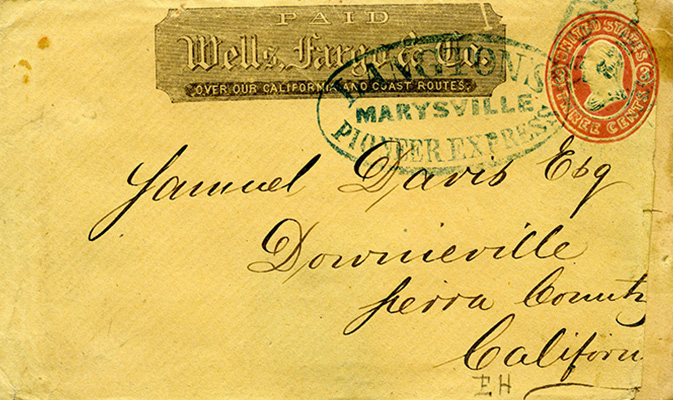 PAID
Wells, Fargo & Co.
OVER OUR CALIFORNIA AND COAST ROUTES.
LANGTON'S
MARYSVILLE
PIONEER EXPRESS
UNITED STATES
THREE CENTS
3 3
Samuel Davis Esq
Downieville
Sierra County
Californ
EH